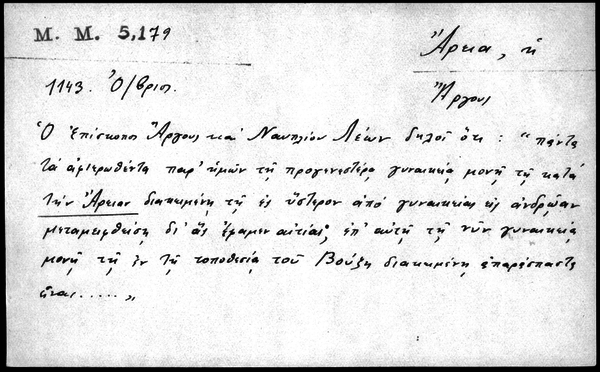 M. M. 5,179
Ἄρεια, ἡ
1143. Ὀ/βριο.
Ἄργους
Ὁ ἐπίσκοπος Ἄργους καὶ Ναυπλίου Λέων δηλοῖ ὅτι : "πάντα
τὰ ἀφιερωθέντα παρ' ἡμῶν τῇ προγενεστέρᾳ γυναικείᾳ μονῇ τῇ κατὰ
τὴν Ἄρειαν διακειμένῃ τῇ ἐς ὕστερον ἀπὸ γυναικείας εἰς ἀνδρῴαν
μεταμειφθείσῃ δι' ἃς ἔφαμεν αἰτίας, ἐπ' αὐτῇ τῇ νῦν γυναικείᾳ
μονῇ τῇ ἐν τῇ τοποθεσίᾳ τοῦ Βούζη διακειμένῃ
εἶναι ..... „